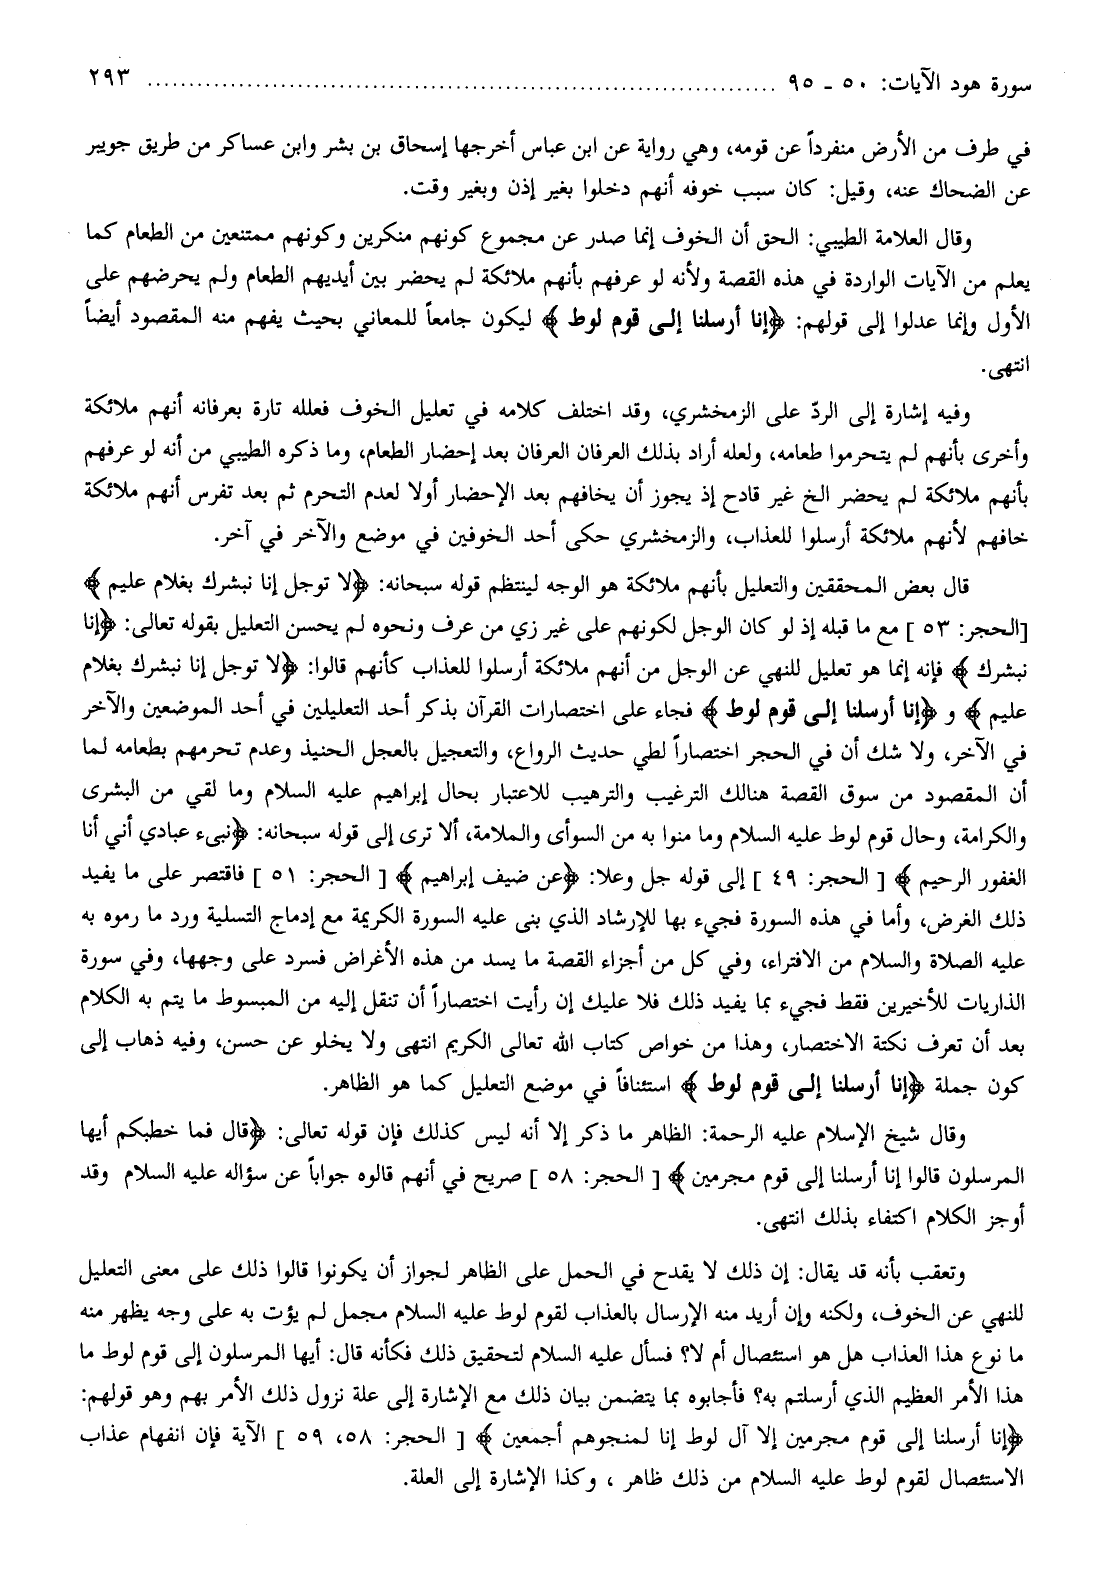 سورة هود الآيات: ٥٠ ـ ٩٥ ........................................................................... ٢٩٣
في طرف من الأرض منفرداً عن قومه، وهي رواية عن ابن عباس أخرجها إسحاق بن بشر وابن عساكر من طريق جويبر
عن الضحاك عنه، وقيل: كان سبب خوفه أنهم دخلوا بغير إذن وبغير وقت.
وقال العلامة الطيبي: الحق أن الخوف إنما صدر عن مجموع كونهم منكرين وكونهم ممتنعين من الطعام كما
يعلم من الآيات الواردة في هذه القصة ولأنه لو عرفهم بأنهم ملائكة لم يحضر بين أيديهم الطعام ولم يحرضهم على
الأول وإنما عدلوا إلى قولهم: ﴿إنا أرسلنا إلى قوم لوط﴾ ليكون جامعاً للمعاني بحيث يفهم منه المقصود أيضاً
انتهى.
وفيه إشارة إلى الردّ على الزمخشري، وقد اختلف كلامه في تعليل الخوف فعلله تارة بعرفانه أنهم ملائكة
وأخرى بأنهم لم يتحرموا طعامه، ولعله أراد بذلك العرفان العرفان بعد إحضار الطعام، وما ذكره الطيبي من أنه لو عرفهم
بأنهم ملائكة لم يحضر الخ غير قادح إذ يجوز أن يخافهم بعد الإحضار أولا لعدم التحرم ثم بعد تفرس أنهم ملائكة
خافهم لأنهم ملائكة أرسلوا للعذاب، والزمخشري حكى أحد الخوفين في موضع والآخر في آخر.
قال بعض المحققين والتعليل بأنهم ملائكة هو الوجه لينتظم قوله سبحانه: ﴿لا توجل إنا نبشرك بغلام عليم﴾
[الحجر: ٥٣ ] مع ما قبله إذ لو كان الوجل لكونهم على غير زي من عرف ونحوه لم يحسن التعليل بقوله تعالى: ﴿إنا
نبشرك﴾ فإنه إنما هو تعليل للنهي عن الوجل من أنهم ملائكة أرسلوا للعذاب كأنهم قالوا: ﴿لا توجل إنا نبشرك بغلام
عليم﴾ و ﴿إنا أرسلنا إلى قوم لوط﴾ فجاء على اختصارات القرآن بذكر أحد التعليلين في أحد الموضعين والآخر
في الآخر، ولا شك أن في الحجر اختصاراً لطي حديث الرواع، والتعجيل بالعجل الحنيذ وعدم تحرمهم بطعامه لما
أن المقصود من سوق القصة هنالك الترغيب والترهيب للاعتبار بحال إبراهيم عليه السلام وما لقي من البشرى
والكرامة، وحال قوم لوط عليه السلام وما منوا به من السوأى والملامة، ألا ترى إلى قوله سبحانه: ﴿نبىء عبادي أني أنا
الغفور الرحيم﴾ [ الحجر: ٤٩ ] إلى قوله جل وعلا: ﴿عن ضيف إبراهيم﴾ [ الحجر: ٥١ ] فاقتصر على ما يفيد
ذلك الغرض، وأما في هذه السورة فجيء بها للإرشاد الذي بنى عليه السورة الكريمة مع إدماج التسلية ورد ما رموه به
عليه الصلاة والسلام من الافتراء، وفي كل من أجزاء القصة ما يسد من هذه الأغراض فسرد على وجهها، وفي سورة
الذاريات للأخيرين فقط فجيء بما يفيد ذلك فلا عليك إن رأيت اختصاراً أن تنقل إليه من المبسوط ما يتم به الكلام
بعد أن تعرف نكتة الاختصار، وهذا من خواص كتاب الله تعالى الكريم انتهى ولا يخلو عن حسن، وفيه ذهاب إلى
كون جملة ﴿إنا أرسلنا إلى قوم لوط﴾ استئنافاً في موضع التعليل كما هو الظاهر.
وقال شيخ الإسلام عليه الرحمة: الظاهر ما ذكر إلا أنه ليس كذلك فإن قوله تعالى: ﴿قال فما خطبكم أيها
المرسلون قالوا إنا أرسلنا إلى قوم مجرمين﴾ [ الحجر: ٥٨ ] صريح في أنهم قالوه جواباً عن سؤاله عليه السلام وقد
أوجز الكلام اكتفاء بذلك انتهى.
وتعقب بأنه قد يقال: إن ذلك لا يقدح في الحمل على الظاهر لجواز أن يكونوا قالوا ذلك على معنى التعليل
للنهي عن الخوف، ولكنه وإن أريد منه الإرسال بالعذاب لقوم لوط عليه السلام مجمل لم يؤت به على وجه يظهر منه
ما نوع هذا العذاب هل هو استئصال أم لا؟ فسأل عليه السلام لتحقيق ذلك فكأنه قال: أيها المرسلون إلى قوم لوط ما
هذا الأمر العظيم الذي أرسلتم به؟ فأجابوه بما يتضمن بيان ذلك مع الإشارة إلى علة نزول ذلك الأمر بهم وهو قولهم:
﴿إنا أرسلنا إلى قوم مجرمين إلا آل لوط إنا لمنجوهم أجمعين﴾ [ الحجر: ٥٨، ٥٩ ] الآية فإن انفهام عذاب
الاستئصال لقوم لوط عليه السلام من ذلك ظاهر ، وكذا الإشارة إلى العلة.